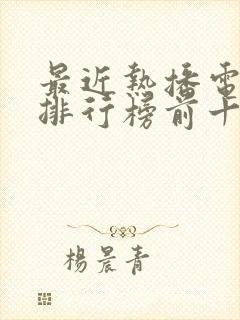 最近熱播電
排行榜前十
楊晨青